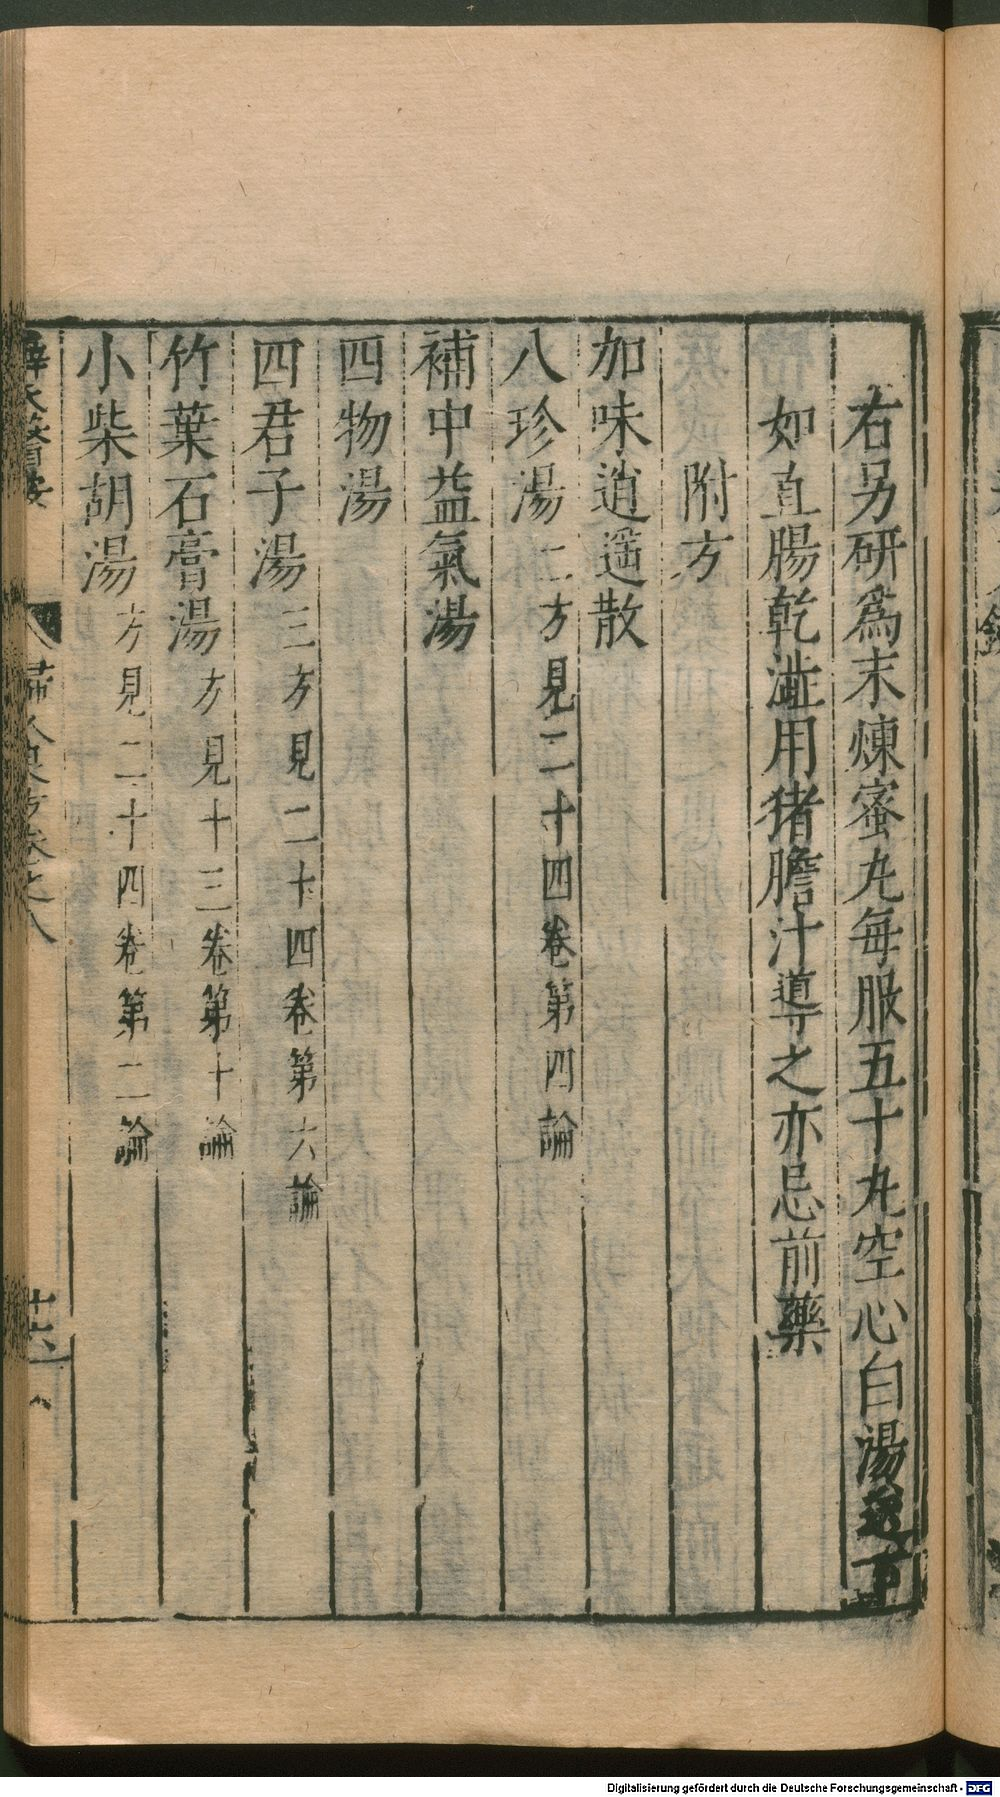 右另研為末煉蜜丸每服五十丸空心白湯送下
如直腸乾澁用猪膽汁導之亦忌前藥
附方
加味逍遥散
八珍湯二方見二十四卷第四論
補中益氣湯
四物湯
四君子湯三方見二十四卷第六論
竹葉石膏湯方見十三卷第十論
小柴胡湯方見二十四卷第二論
婦人良方卷之八
十六
Digitalisierung gefördert durch die Deutsche Forschungsgemeinschaft - DFG